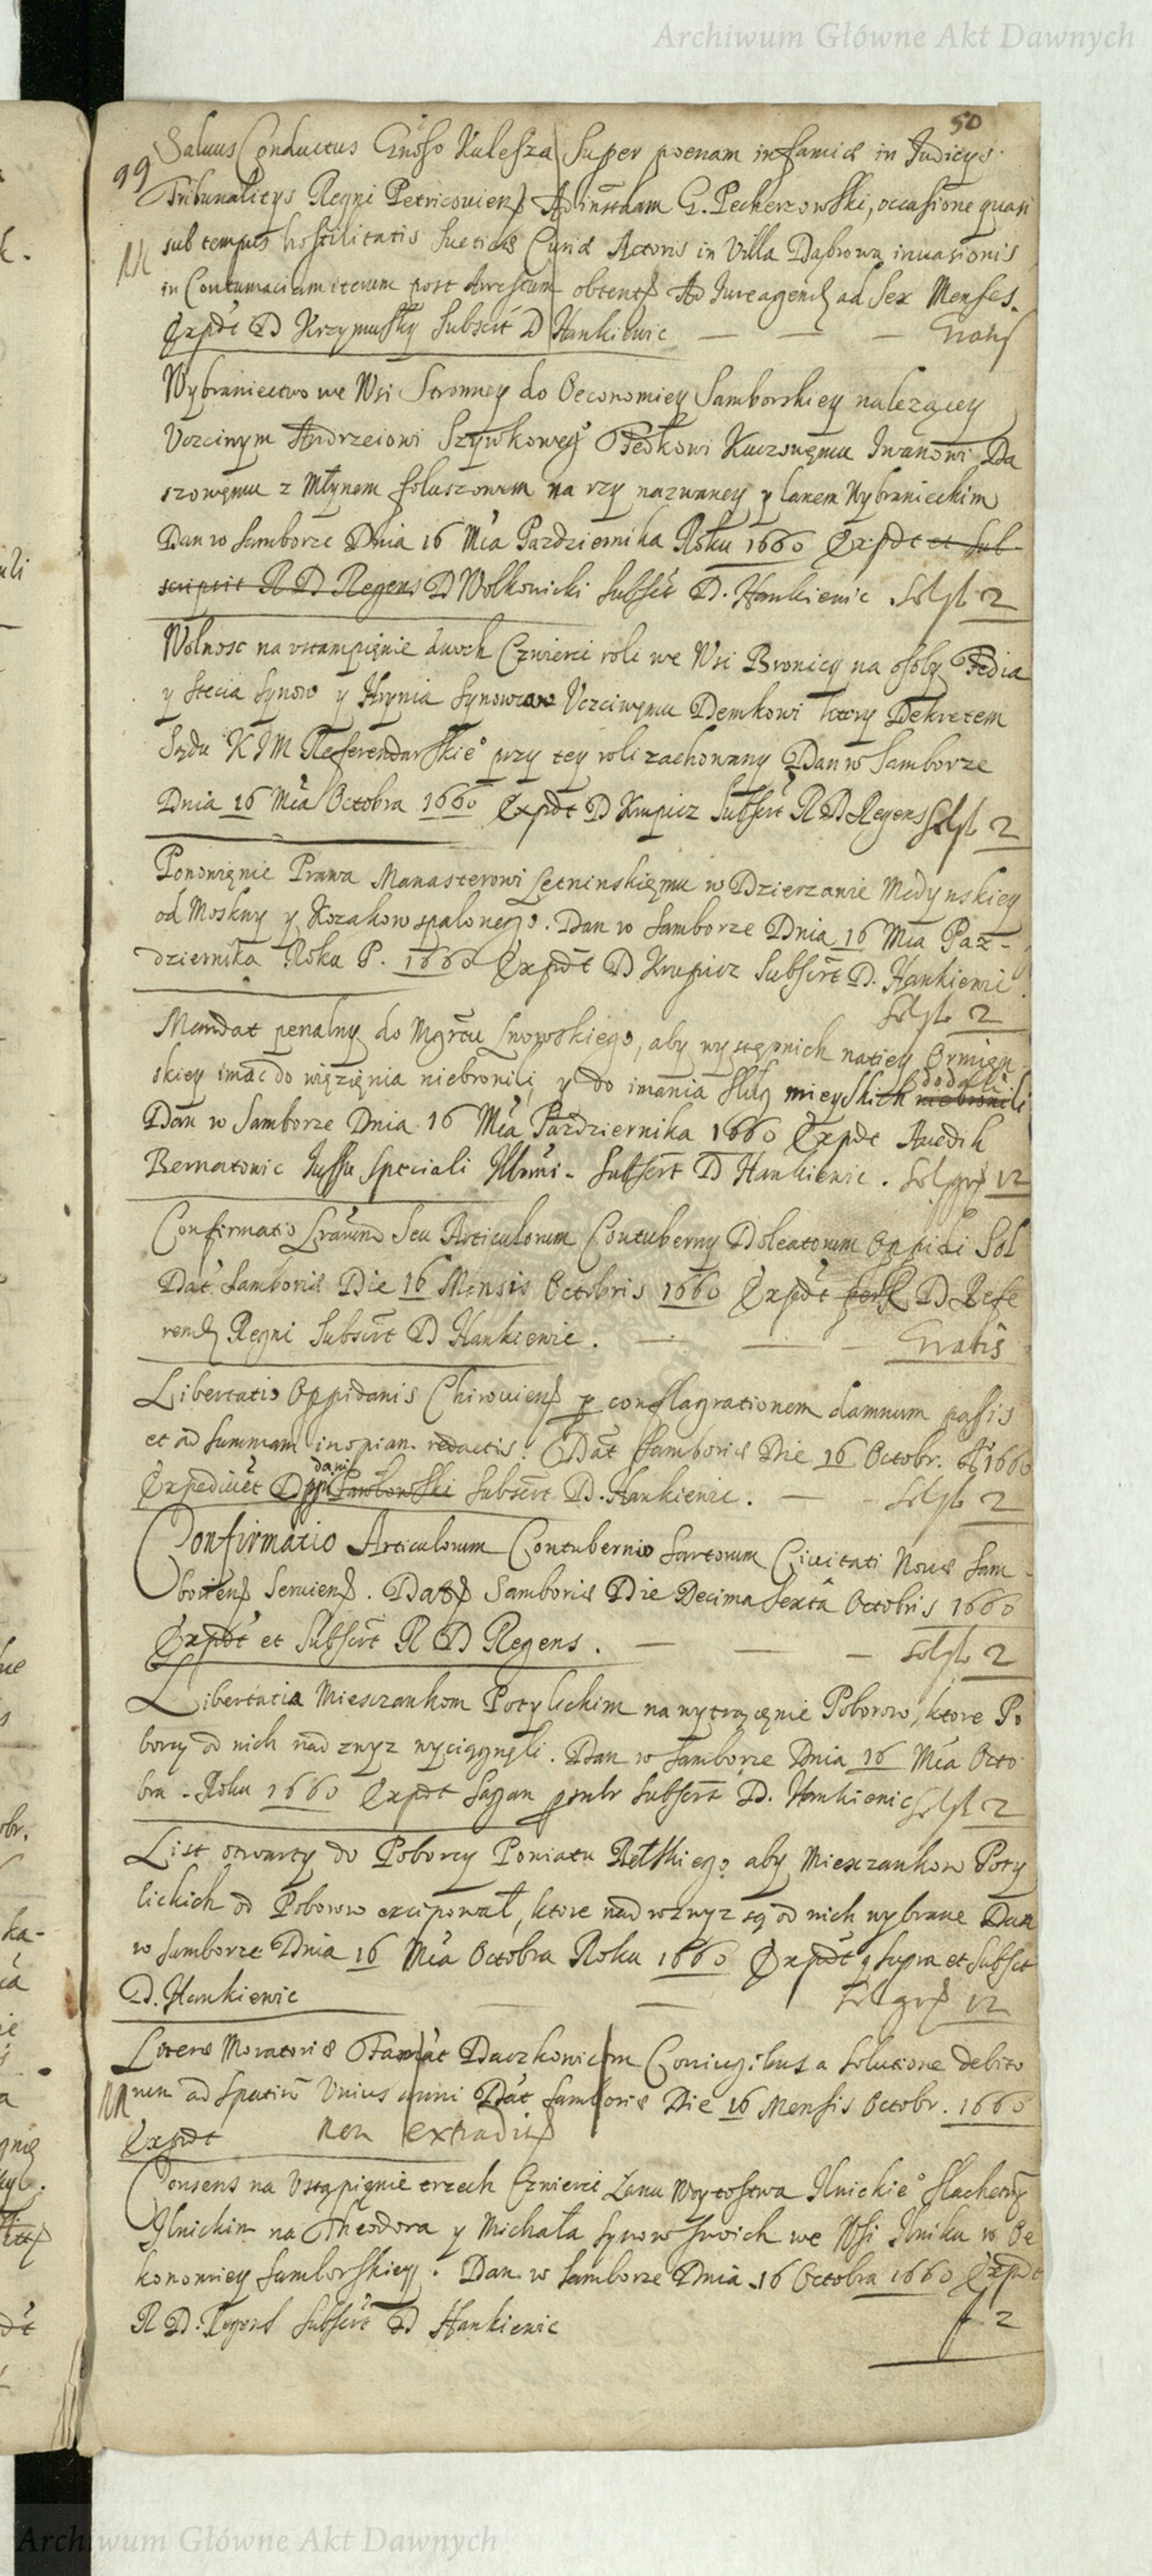 Archiwum Główne Akt Dawnych
50
99
Saluus Conductus Gnoso Kulesza Super poenam infamiæ in Judicys
Tribunalitys Regni Petricouiens Ad instnam G. Pecherzowski, occasione quasi
NN
sub tempus hostilitatis Sueticæ Curiæ Actoris in Villa Dąbrowa inuasionis
in Contumaciam iterum post Arrestum obtent Ad Jureagend ad Sex Menses.
Expdt D Krzymusky Subscrt D Hankiewic — — — Gratis
Wybraniectwo we Wsi Stronney do Oeconomiey Samborskiey nalezącey
Vczciwym Andrzeiowi Szywkoweg Fedkowi Kuczowęmu Iwanowi Da
szowęmu z Młynem foluszowem na rzy nazwaney y łanem Wybranieckim
Dan w Samborze Dnia 16 Mca Pazdziernika Roku 1660 Expdt et Sub
scripsit R D Regens D Wolkowicki Subscr D. Hankiewic Solfl 2
Wolnosc na vstąmpięnie dwoch Czwierci roli we Wsi Bronicy na osoby Fedia
y Stecia Synow y Hrynia Synowca Vczciwęmu Demkowi ktory Dekretem
Sądu KJM Referendarskieo przy tey roli zachowany Dan w Samborze
Dnia 16 Mca Octobra 1660 Expdt D Krupicz Subscrt R D Regens Solfl 2
Ponowięnie Prawa Manasterowi Letninskięmu w Dzierzawie Medynskiey
od Moskwy y Kozakow spalonego. Dan w Samborze Dnia 16 Mca Paz-
dziernika Roku P. 1660 Expdt D Krupicz Subscrt D. Hankiewi
Solfl 2
Mandat penalny do Mgrtu Lwowskiego, aby występnich natiey Ormięn
skiey imać do więzięnia niebronili, y do imania sług mieyskich niebronili
dodali
Dan w Samborze Dnia 16 Mca Pazdziernika 1660 Expdt Awedik
Bernatowic Jussu speciali Illmi - Subscrt D Hankiewic. Sol gr 12
Confirmatio Lrarum Seu Articulorum Contuberny Doleatorum Oppidi Sol
Dat Samboriæ Die 16 Mensis Octobris 1660 Expdt D Refe
rend Regni Subscrt D Hankiewic. — — — Gratis
Libertatio Oppidanis Chirouiens p conflagrationem damnum passis
et ad summam inopiam redactis. Dat Samboriæ Die 16 Octobr. Ao 1660
Expediuit D Pawłowski Subscrt D. Hankiewic. — — Solfl 2
Confirmatio Articulorum Contubernio Sartorum Ciuitati Nouæ Sam
boriens Seruiens. Dat Samboriæ Die Decima Sexta Octobris 1660
Expdt et Subscrt R D Regens. — — — Solfl 2
Libertatia Mieszczankom Potylickim na wytrącęnie Poborow, ktore Po
borcy od nich nad zwyz wyciągnęli. Dan w Samborze Dnia 16 Mca Octo
bra - Roku 1660 Expdt Sagan Subscrt D. Hankiewic Solfl 2
List otwarty do Poborcy Powiatu Bełskiego aby Mieszczankow Poty
lickich od Poborow excipował, ktore nad wzwyz są od nich wybrane Dan
w Samborze Dnia 16 Mca Octobra Roku 1660 Expdt q supra et Subscrt
D. Hankiewic — — Sol gr 12
Literæ Moratoriæ Daczkowicom Coniugibus a Solutione debito
NN
rum ad Spatiu Vnius anni Dat Samboriæ Die 16 Mensis Octobr. 1660
Expdt non extradit
Consens na Vstąpięnie trzech Czwierci Łanu Woytostwa Ilnickieo Slachetny
Ilnickim na Theodora y Michała Synow swoich we Wsi Ilniku w Oe
konomiey Samborskiey. Dan w Samborze Dnia 16 Octobra 1660 Expdt
R D. Regens Subscrt D Hankiewic f 2
Archiwum Główne Akt Dawnych